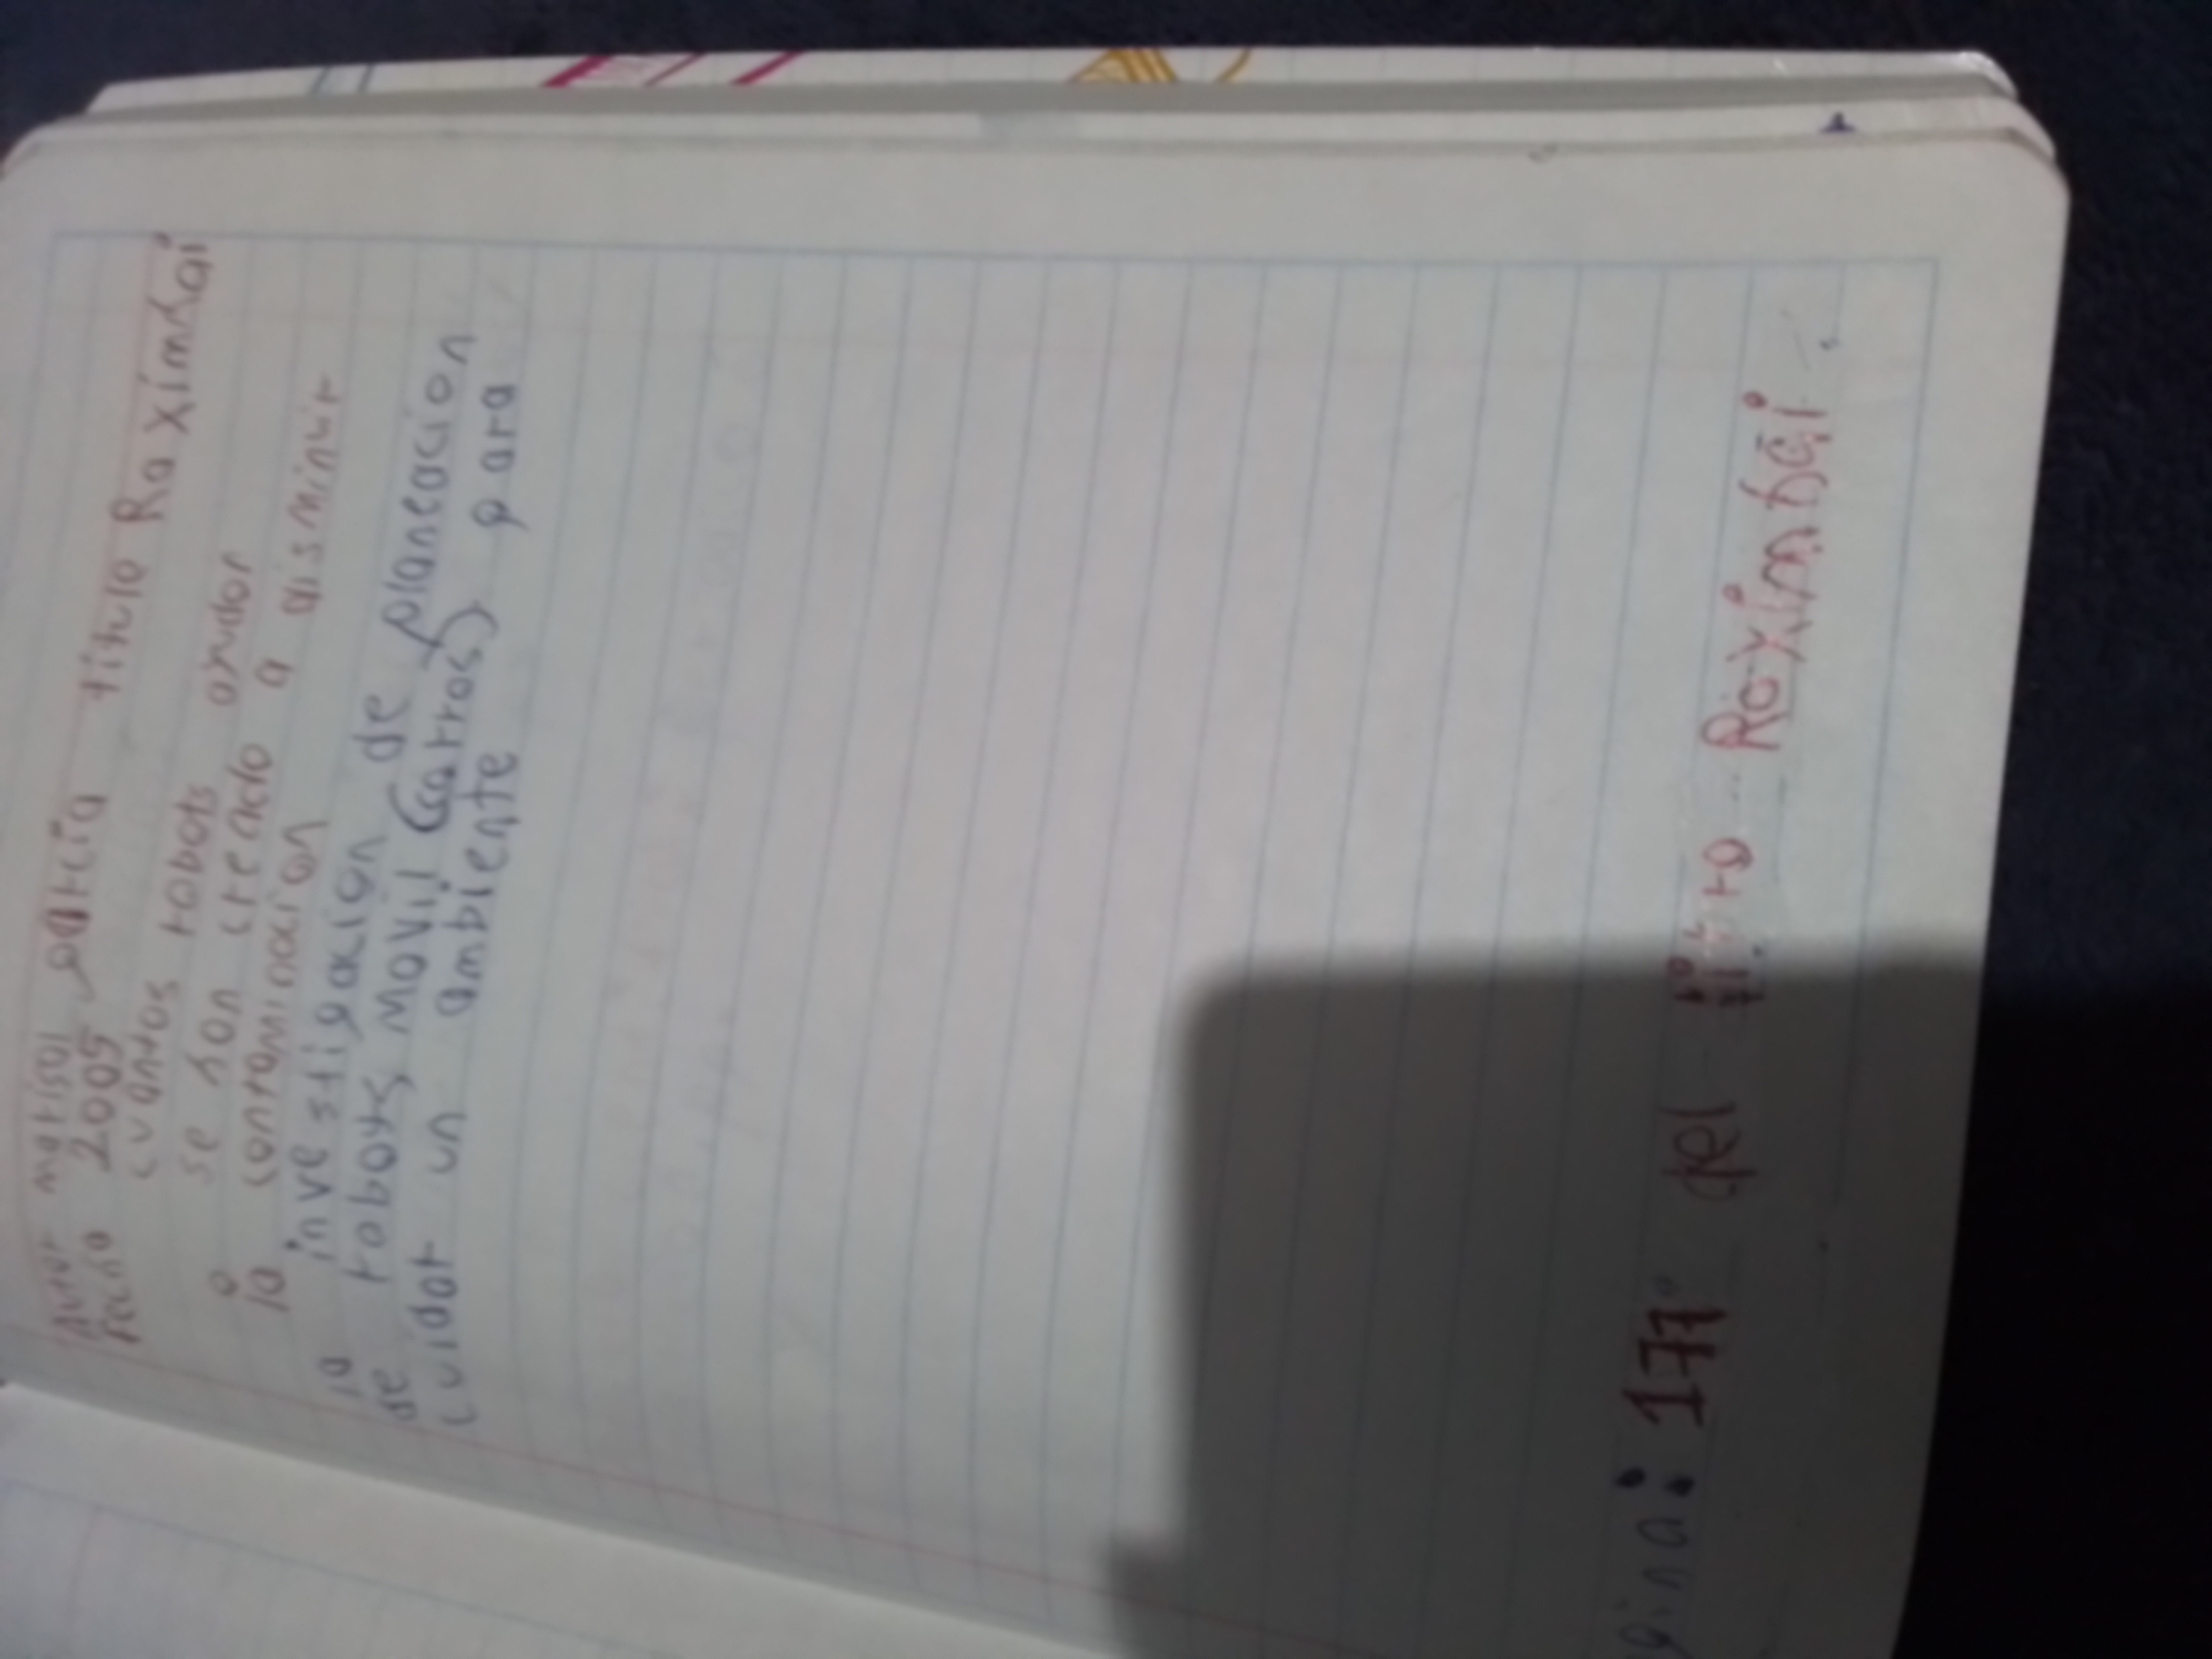 Autor marisol garcia titulo Ra ximhai
Fecha 2005
cuantos robots ayudan
se han creado a disminuir
a
la contaminacion
la investigacion de planeacion
de robots movil (carros) para
cuidar un ambiente
gina: 177 del libro Raximhai